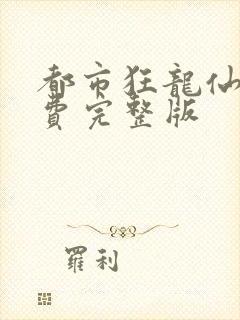 都市狂龍仙
費完整版
羅利